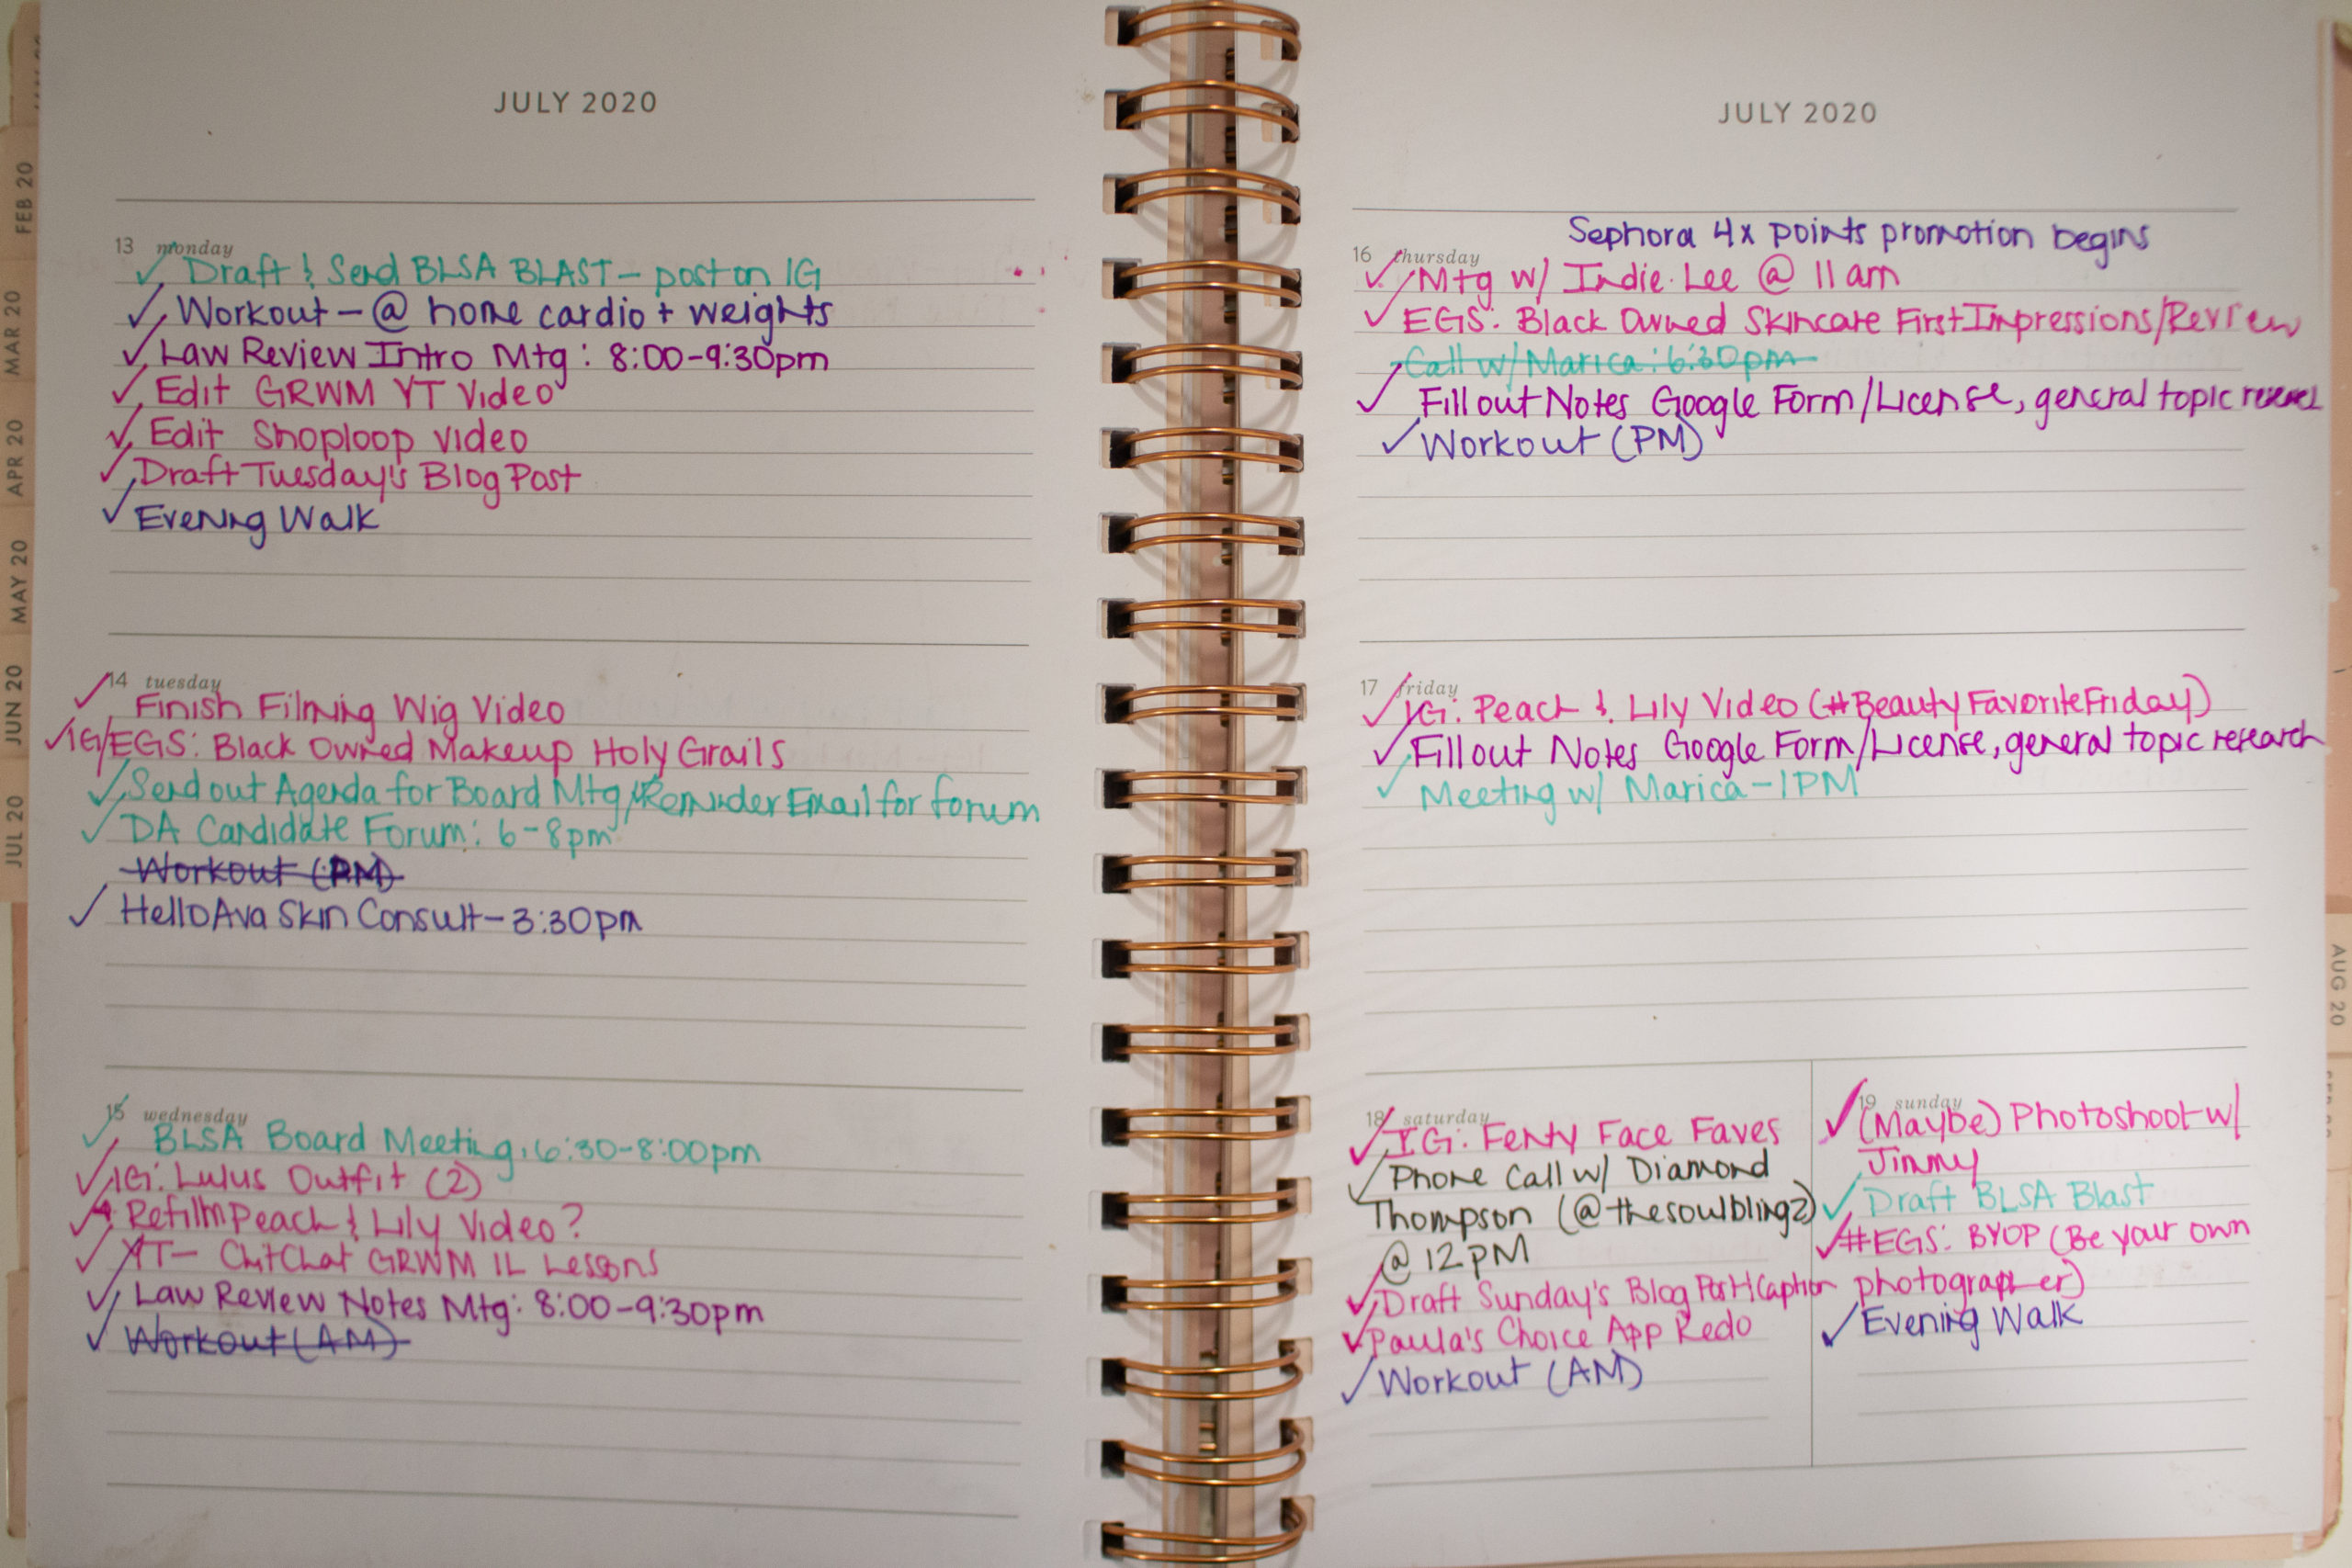 JULY 2020
13 monday
Draft & Send BLSA BLAST - post on IG
Workout - @ home cardio + weights
Law Review Intro Mtg: 8:00-9:30pm
Edit GRWM YT Video
Edit Shoploop video
Draft Tuesday's Blog Post
Evening Walk
14 tuesday
Finish Filming Wig Video
IG/EGS: Black Owned Makeup Holy Grails
Send out Agenda for Board Mtg/Reminder Email for forum
DA Candidate Forum: 6-8pm
Workout (PM)
HelloAva Skin Consult - 3:30pm
15 wednesday
BLSA Board Meeting, 6:30-8:00pm
IG: Lulus Outfit (2)
Refilm Peach & Lily Video?
YT - ChitChat GRWM 1L Lessons
Law Review Notes Mtg: 8:00-9:30pm
Workout (AM)
FEB 20
MAR 20
APR 20
MAY 20
JUN 20
JUL 20
JULY 2020
Sephora 4x points promotion begins
16 thursday
Mtg w/ Indie Lee @ 11am
EGS: Black Owned Skincare First Impressions/Review
Call w/ Marica: 6:30pm
Fill out Notes Google Form/License, general topic
Workout (PM)
17 friday
IG: Peach & Lily Video (#BeautyFavoriteFriday)
Fill out Notes Google Form/License, general topic research
Meeting w/ Marica - 1PM
18 saturday
IG: Fenty Face Faves
Phone Call w/ Diamond
Thompson (@thesoulbling2)
@ 12PM
Draft Sunday's Blog Post/Caption
Paula's Choice App Redo
Workout (AM)
19 sunday
(Maybe) Photoshoot w/
Jimmy
Draft BLSA Blast
#EGS: BYOP (Be your own
photographer)
Evening Walk
AUG 20